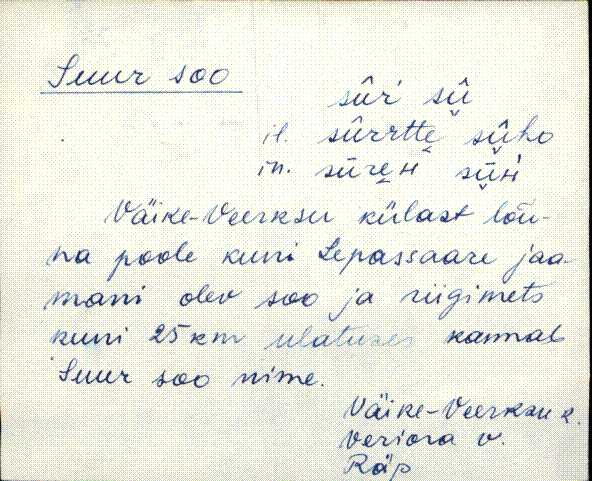 Suur soo
sūri sū̬
il. sūrrtte̬ sū̬ho
in. sūre̬н sū̬н
Väike-Veerksu külast lõu-
na poole kuni Lepassaare jaa-
mani olev soo ja riigimets
kuni 25 km ulatuses kannab
Suur soo nime.
Väike-Veerksu k.
Veriora v.
Räp